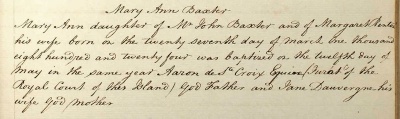 Mary Ann Baxter
Mary Ann daughter of Mr. John Baxter and of Margaret
his wife born on the twenty seventh day of march one thousand
eight hundred and twenty four was baptised on the twelfth day of
may in the same year Aaron de Ste. Croix Esquire (Jurat of the
Royal Court of this Island) God Father and Jane Dauvergne his
wife God mother